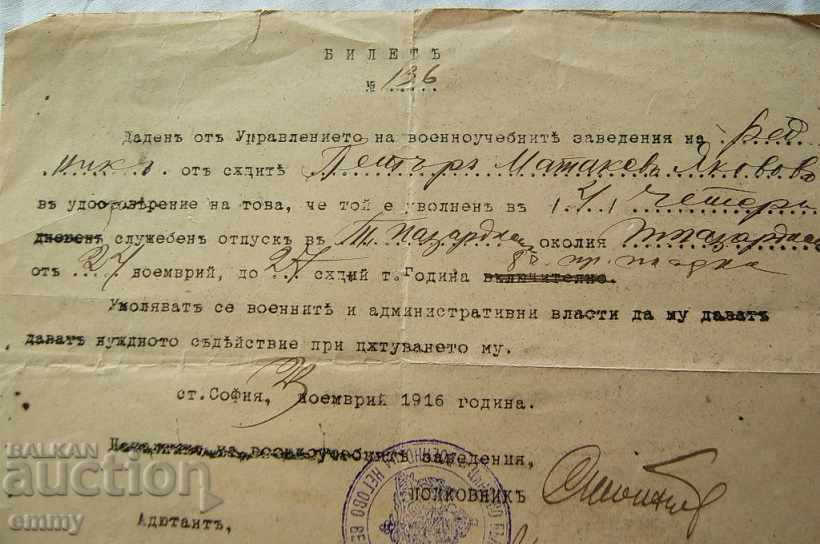 БИЛЕТЪ
№ 136
Даденъ отъ Управлението на военноучебнитѣ заведения на ред
никъ отъ сѫщитѣ Петъръ Матакевъ Яковъ
въ удостовѣрение на това, че той е уволненъ въ /4/ четери
дневенъ служебенъ отпускъ въ Т. Пазарджи околия Т Пазарджи
отъ 27 ноемврий, до сѫщий т. година включително.
Умоляватъ се военнитѣ и административни власти да му даватъ
даватъ нуждното съдѣйствие при пѫтуването му.
ст. София, 23 ноемврий 1916 година.
Началникъ на военноучебнитѣ заведения,
Полковникъ
Адютантъ,
НА НЕГОВО ВЕ
BALKAN
auction
emmy